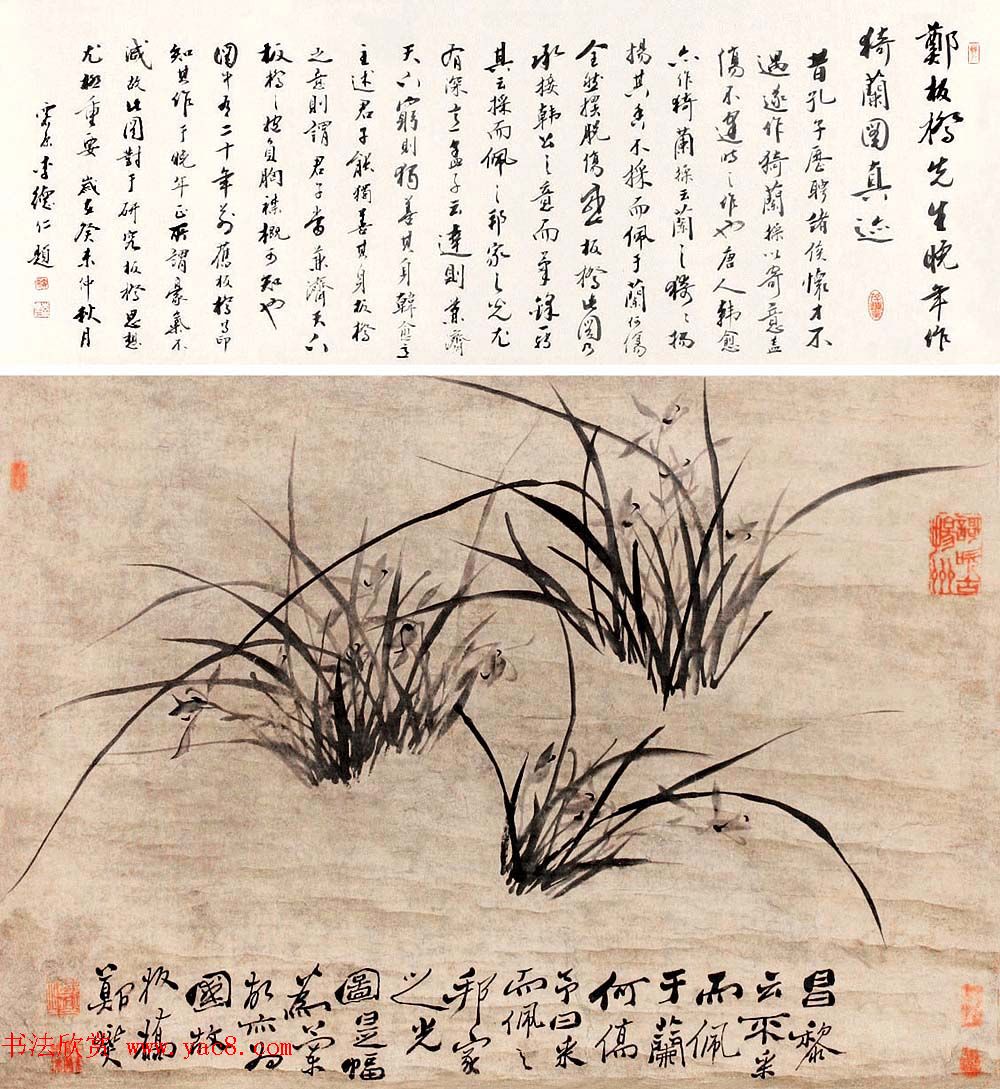 鄭板橋先生晚年作
猗蘭圖真迹
昔孔子歷聘諸侯懷才不
遇遂作猗蘭操以寄意蓋
傷不逢時之作也唐人韓愈
亦作猗蘭操云蘭之猗猗揚
揚其香不採而佩于蘭何傷
全然擺脫傷感板橋此圖乃
承接韓公之意而筆鋒
其云採而佩之邦家之光尤
有深意孟子云達則兼濟
天下窮則獨善其身韓愈
主述君子能獨善其身板橋
之意則謂君子當兼濟天下
板橋之抱負胸襟概可知也
圖中有二十年前舊板橋印
知其作于晚年正所謂豪氣不
減故此圖對于研究板橋思想
尤極重要歲在癸未仲秋月
李德仁題
歌吹古揚州
昌黎
云不采
而佩
于蘭
何傷
予曰采
而佩之
邦家
之光
圖是幅
故亦為
國牧
板橋
鄭燮
书法欣赏 www.yac8.com